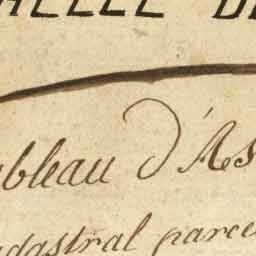 HELLE DE
bleau d'As
adastral parce